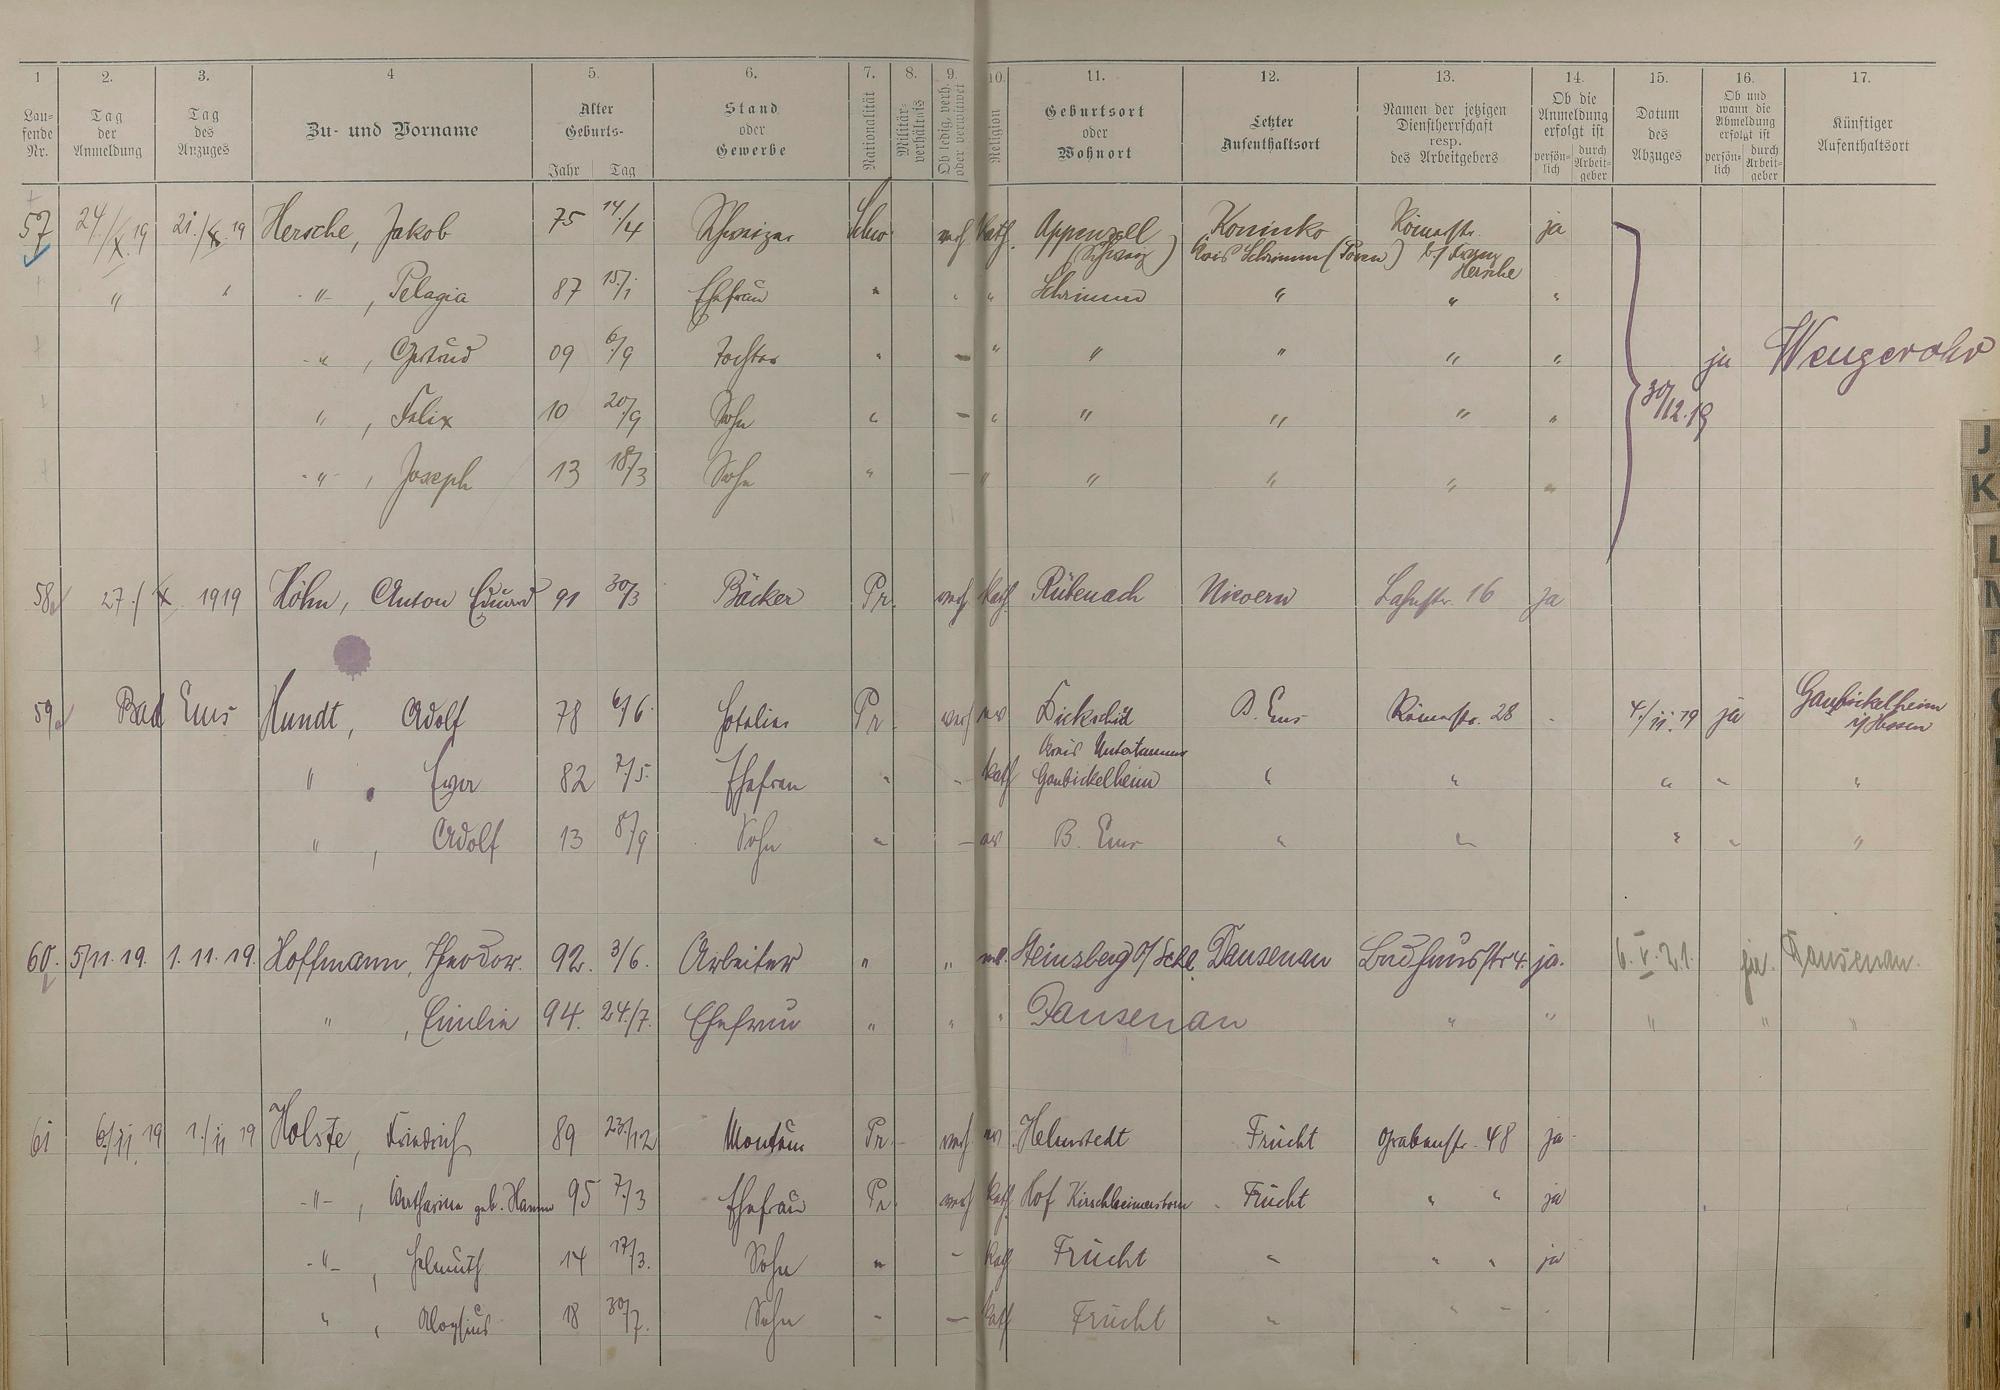 1 2. 3. 4 5. 6. 7. 8. 9. 10. 11. 12. 13. 14. 15. 16. 17.
Lau-
fende
Nr.
Tag
der
Anmeldung
Tag
des
Anzuges
Zu- und Vorname
Alter
Geburts-
Jahr Tag
Stand
oder
Gewerbe
Nationalität
Militär-
verhältnis
Ob ledig, verh.
oder verwitwet
Religion
Geburtsort
oder
Wohnort
Letzter
Aufenthaltsort
Namen der jetzigen
Dienstherrschaft
resp.
des Arbeitgebers
Ob die
Anmeldung
erfolgt ist
persön-
lich
durch
Arbeit-
geber
Datum
des
Abzuges
Ob und
wann die
Abmeldung
erfolgt ist
persön-
lich
durch
Arbeit-
geber
Künftiger
Aufenthaltsort
57 24./X.19 21./X.19 Hersche, Jakob 75 14./4 Schweizer verh kath. Appenzell Koninko Römerstr. ja
(Schweiz) Kreis Schrimm (Posen) b/ Franz
Hersche
" " " , Pelagia 87 15./1 Ehefrau " " " Schrimm " " "
" , Gertrud 09 6/9 Tochter " – " " " " " ja Wengerohr
" , Felix 10 20/9 Sohn " – " " " " " 30/12.19
" , Joseph 13 18/3 Sohn " – " " " " "
58 27./X. 1919 Höhn, Anton Eduard 91 30/3 Bäcker Pr. verh kath. Rübenach Nievern Lahnstr. 16 ja
59 Bad Ems Hundt, Adolf 78 6/6. Hotelier Pr. verh ev Dickschid B. Ems Römerstr. 28 4./11.19 ja Gaubickelheim
i/Hessen
Kreis Untertaunus
" , Eva 82 7./5. Ehefrau " " kath Gaubickelheim " " " " "
" , Adolf 13 8/9 Sohn " – ev B. Ems " " " " "
60. 5/11. 19. 1. 11. 19. Hoffmann, Theodor. 92. 3/6. Arbeiter " " Steinsberg Dausenau Badhausstr 4. ja. 6. V. 21. ja. Dausenau.
" , Emilie 94. 24./7. Ehefrau " " " Dausenau " " " " "
61 6./11. 19 1./11 19 Holste, Friedrich 89 23./12 Monteur Pr. verh. ev. Helmstedt Frücht Grabenstr. 48 ja
" , Katharina geb. Hamm 95 7./3 Ehefrau Pr verh kath. Hof Frücht " " ja
" , Helmuth 14 17/3. Sohn " – kath Frücht " " " ja
" , Aloysius 18 30/7. Sohn " – kath Frücht " " "
J
K
L
M